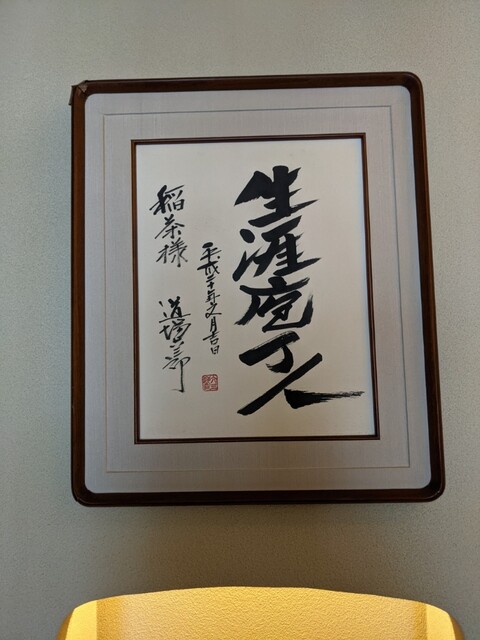 生涯庖丁人
平成二十年 月吉日
稲茶様
道場六三郎